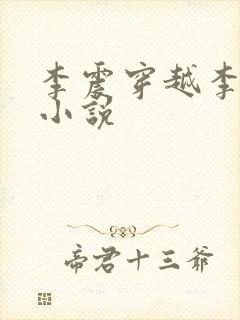 李震穿越李
小說
帝君十三爺